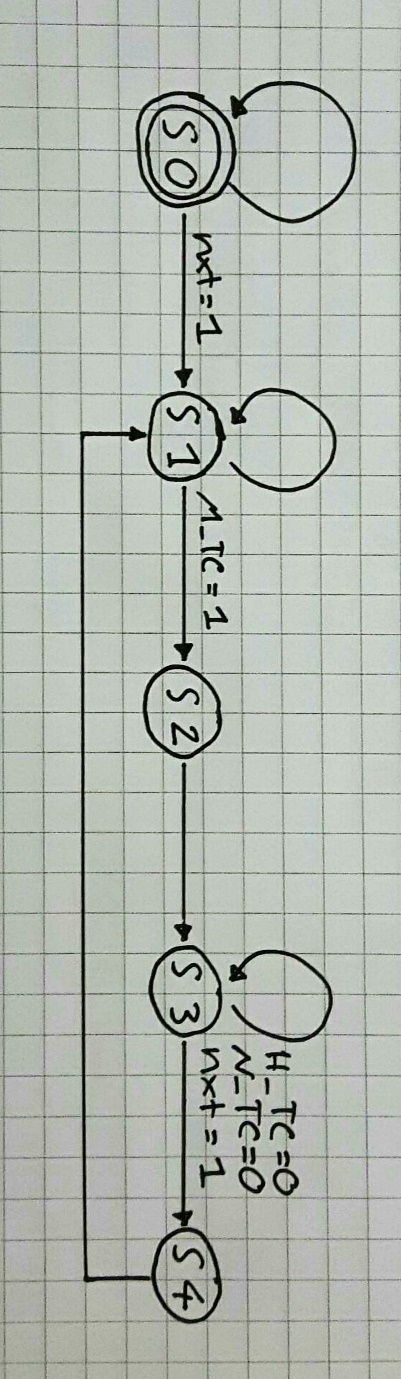 S0
nxt = 1
S1
M_TC = 1
S2
S3
H_TC=0
N_TC=0
nxt = 1
S4